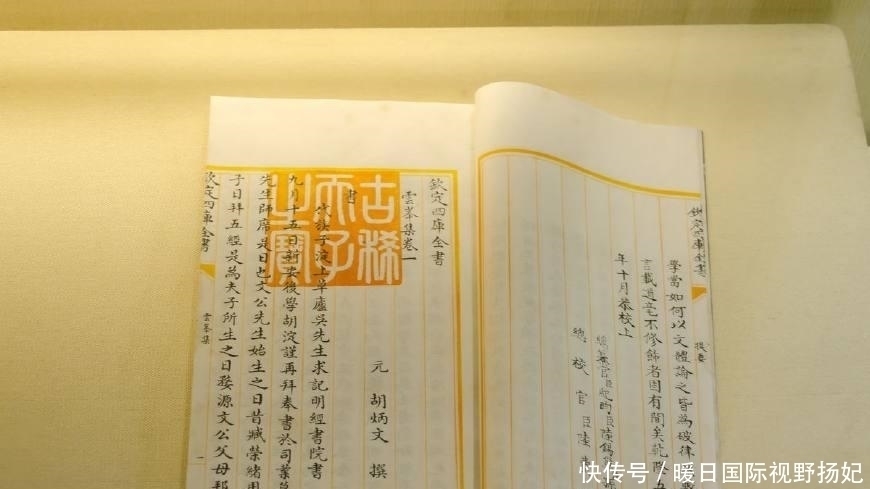 欽定四庫全書
提要
學當如何以文體論之皆為破律
言載道毫不修飾者固有間矣乾隆五
年十月恭校上
總纂官臣紀昀臣陸錫
總校官臣陸
欽定四庫全書
雲峯集卷一
元 胡炳文 撰
古稀天子之寶
書
代族子淀上草廬吳先生求記明經書院書
九月十五日新安後學胡淀謹再拜奉書於司業
先生師席是日也文公先生始生之日昔臧榮緒用
子日拜五經是為夫子所生之日婺源文公父母邦
欽定四庫全書
雲峯集
一
快传号/暖日国际视野扬妃